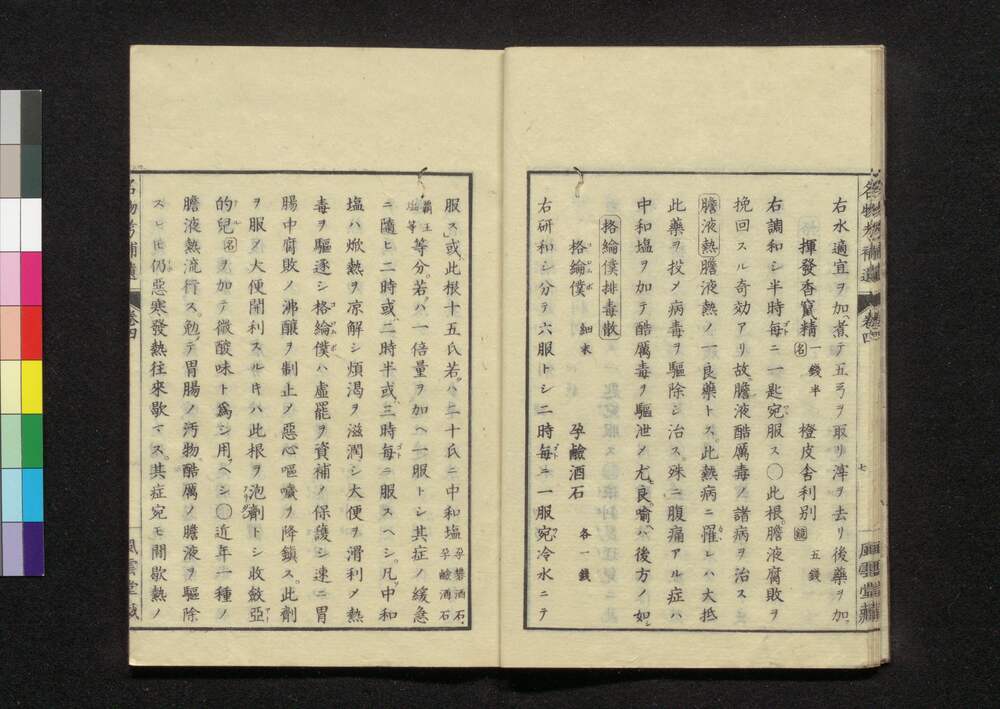 名物考補遺 卷四 七 風雲堂藏
右水適宜ヲ加ヘ煮テ五弓ヲ取リ滓ヲ去リ後藥ヲ加フ
揮發香竄精 名 一錢半 橙皮舎利別 鎔 五錢
右調和シ半時毎ニ一匙宛服ス〇此根ハ膽液腐敗ヲ
挽回スル奇効アリ故ニ膽液酷厲毒ノ諸病ヲ治ス
膽液熱 膽液熱ノ一良藥トス此熱病ニ罹レハ大抵
此藥ヲ投メ病毒ヲ驅除シ治ス殊ニ腹痛アル症ハ
中和塩ヲ加テ酷厲毒ヲ驅泄メ尤良喩ヘハ後方ノ如シ
格綸僕排毒散
格綸僕 コロムボ 細末 孕鹼酒石 各一錢
右研和シ分テ六服トシ二時毎ニ一服宛冷水ニテ
服ス」或此根十五氏若ハ二十氏ニ中和塩 孕礬酒石、孕鹼酒石
覇王塩等 等分若ハ一倍量ヲ加ヘ一服トシ其症ノ緩急
ニ隨ヒ二時或ハ二時半或ハ三時毎ニ服スヘシ凡ソ中和
塩ハ焮熱ヲ凉解シ煩渇ヲ滋潤シ大便ヲ滑利メ熱
毒ヲ驅逐シ格綸僕ハ虚罷ヲ資補ノ保護シ速ニ胃
腸中腐敗ノ沸醸ヲ制止メ惡心嘔噦ヲ降鎮ス此劑
ヲ服メ大便開利スルキハ此根ヲ泡劑トシ收斂亞
的兒 名 ヲ加テ微酸味ト爲シ用ヘシ〇近年一種ノ
膽液熱流行ス勉テ胃腸ノ汚物酷厲ノ膽液ヲ驅除
スヒ仍惡寒發熱往來歇マス其症宛モ間歇熱ノ
名物考補遺 卷四 風雲堂藏